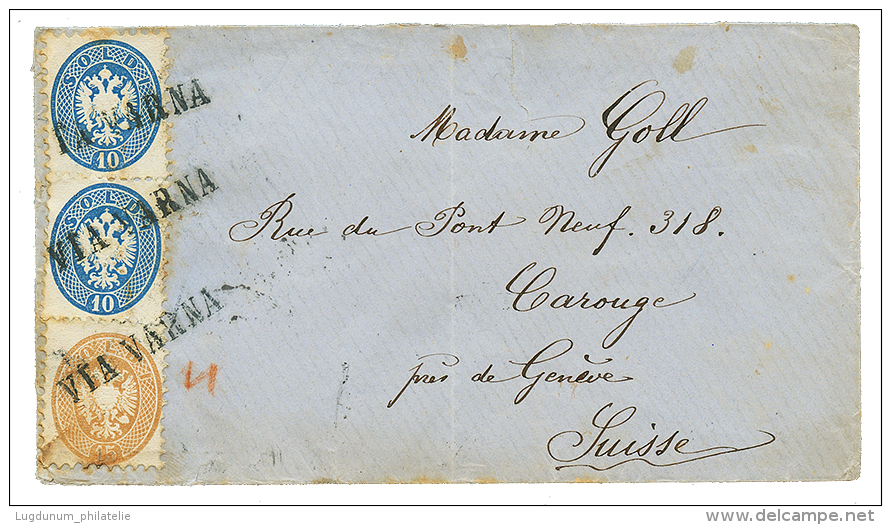 SOLDI
10
VIA VARNA
SOLDI
10
VIA VARNA
SOLDI
15
VIA VARNA
Madame Goll
Rue du Pont Neuf. 318.
Carouge
près de Genève
Suisse
Lugdunum_philatelie
www.delcampe.net